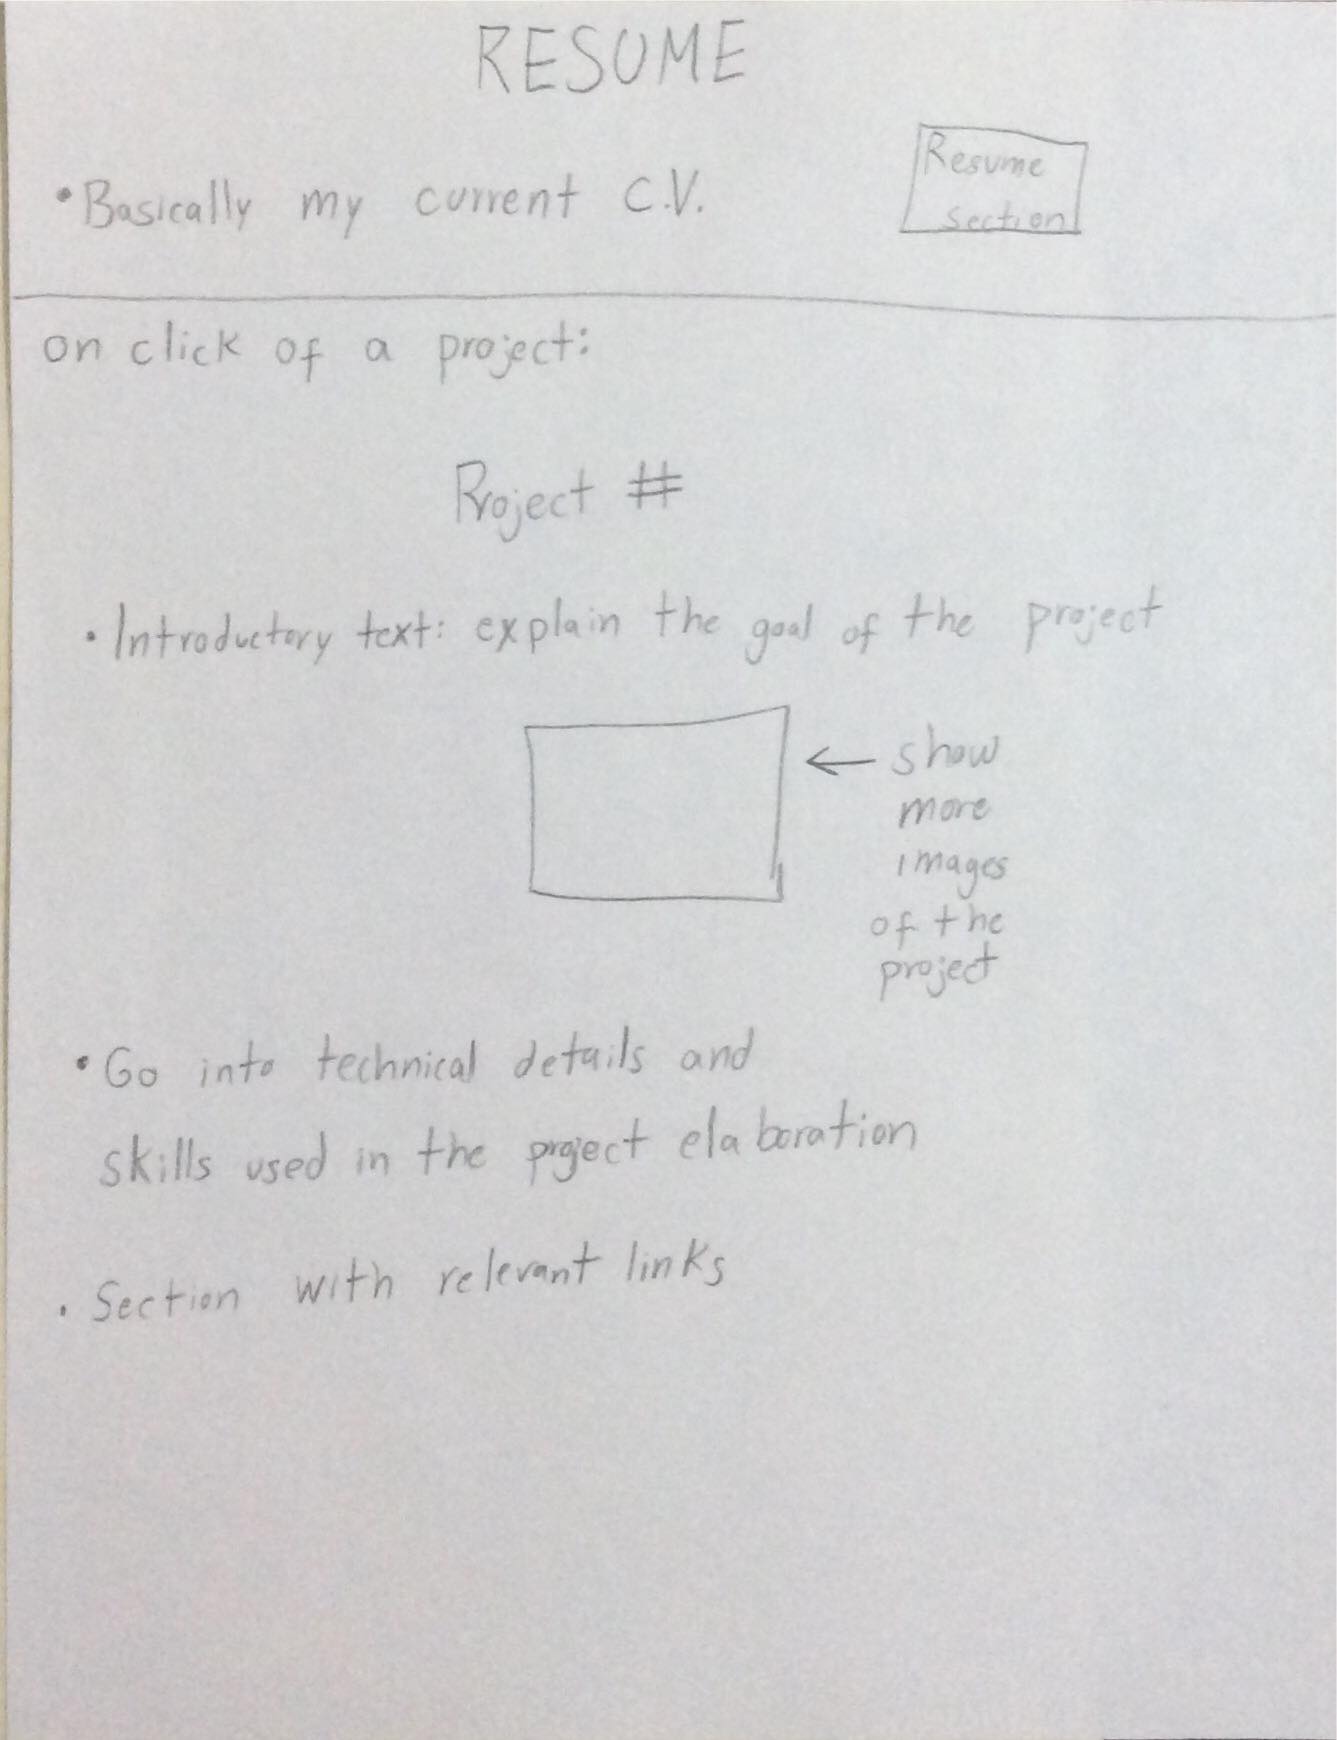 RESUME
• Basically my current C.V.
Resume
section
on click of a project:
Project #
• Introductory text: explain the goal of the project
← show
more
images
of the
project
• Go into technical details and
skills used in the project elaboration
• Section with relevant links